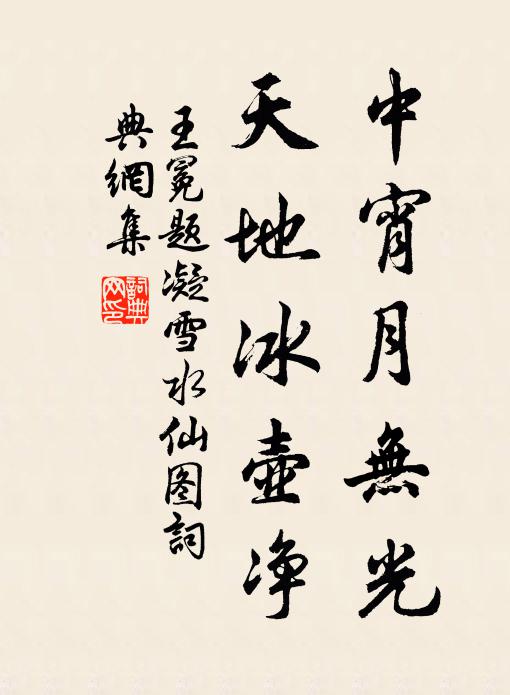 中宵月無光
天地冰壺净
王冕题凝雪水仙图詞
典網集
詞典网印